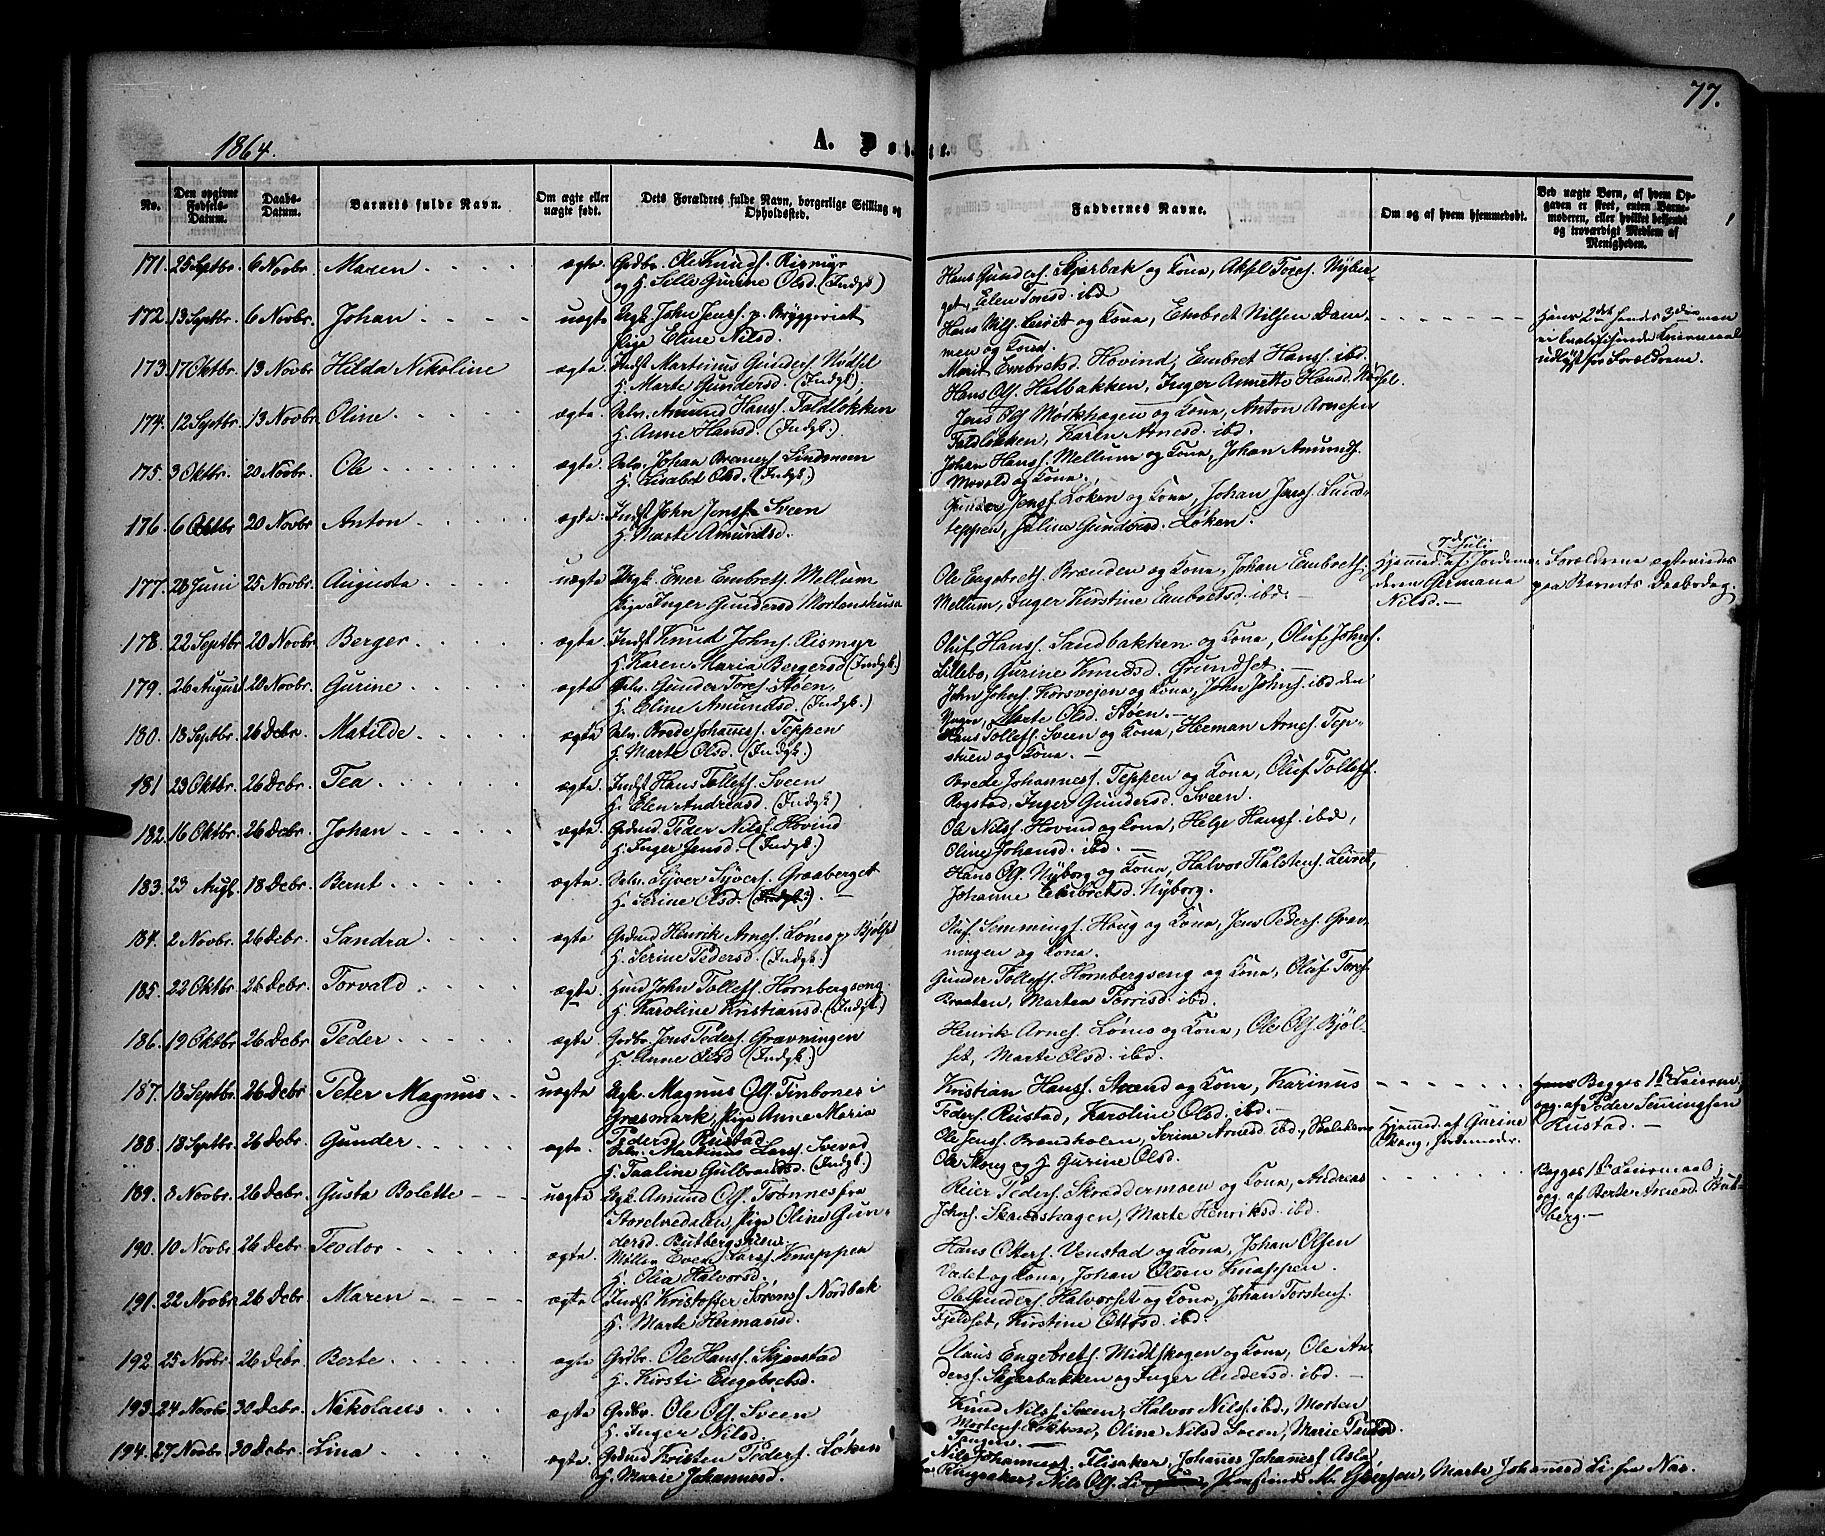 77.
1864.
A. Døbte.
No.
Den opgivne Fødsels-Datum.
Daabs-Datum.
Barnets fulde Navn.
Om ægte eller uægte født.
Dets Forældres fulde Navn, borgerlige Stilling og Opholdssted.
Faddernes Navne.
Om og af hvem hjemmedøbt.
Ved uægte Børn, af hvem Opgaven er skeet, enten Barnemoderen, eller hvilket bekjendt og troværdigt Medlem af Menigheden.
171. 25 Septbr. 6 Novbr. Maren ægte Grdbr. Ole Knuds. Rismyr
og H. Sille Gurine Olsd. (Indgk.)
Hans Gunders. Skjærbæk og Kona, Aksel Tores. Nyber-
get, Elen Toresd. ibd
172. 13 Septbr. 6 Novbr. Johan uægte Ugk. John Jens. p. Bryggeriet
Pige Eline Nilsd.
Hans Nils. Leiret og Kona, Embret Nilsen Dam-
men og Kona.
Hans 2det hendes 3die
173. 17 Oktbr. 13 Novbr Hilda Nikoline ægte Indst Martinus Gunders. Nødsel
H. Marte Gundersd. (Indgk.)
Marit Embretsd. Hovind, Embret Hanss. ibd.
Hans Ols. Halbakken, Inger Annette Hansd. Nødsel.
174. 12 Septbr. 13 Novbr. Oline ægte Selv. Amund Hanss. Faldløkken
H. Anne Hansd. (Indgk.)
Jens Ols Morkhagen og Kona, Anton Arnesen
Faldløkken, Karen Arnesd. ibd.
175. 3 Oktbr. 20 Novbr. Ole ægte Selv. Johan Lindmoen
H. Lisabet Olsd. (Indgk.)
Johan Hanss. Mellum og Kona, Johan Amunds.
Movold og Kona.
176. 6 Oktbr 20 Novbr. Anton ægte Indst John Jenss. Sveen
H. Marte Amundsd.
Gunder Jenss. Løken og Kona, Johan Jens. Lund-
teppen, Gundersd. Løken.
177. 28 Juni 25 Novbr. Auguste uægte Ungk. Ener Embrets. Mellum
Pige Inger Gundersd Mortenshusa
Ole Engebrets. Brænden og Kona, Johan Embrets.
Mellum, Inger Kirstine Embretsd. ibd.
7d Juli
Hjemmed. af Jordemo-
deren Germana
Nilsd.
Forældrene ægteviedes
paa Barnets Daabsdag.
178. 22 Septbr. 20 Novbr. Berger ægte Indst Knud Johns. Rismyr
H. Karen Maria Bergersd (Indgk.)
Oluf Hanss. Sandbakken og Kona, Oluf Johns.
Lillebo, Gurine Knudsd. Grundset.
179. 26 August 20 Novbr. Gurine ægte Selv. Gunder Tores. Støen,
H. Eline Amundsd. (Indgk.)
John Johns. Korsvejen og Kona, John Johns. ibd den
Yngre, Marte Olsd. Støen.
180. 18 Septbr. 26 Debr. Matilde ægte Selv. Brede Johanness. Teppen
H. Marte Olsd. (Indgk.)
Hans Tollefs. Sveen og Kona, Herman Arnes. Tep-
stuen og Kona.
181 23 Oktbr. 26 Debr. Tea ægte Indst Hans Tollefs. Sveen
H. Elen Andreasd. (Indgk.)
Brede Johanness. Teppen og Kona, Oluf Tollefs.
Rogstad, Inger Gundersd. Sveen.
182. 16 Oktbr. 26 Debr. Johan ægte Grdmd. Peder Nilss. Hovind
H. Inger Jensd. (Indgk.)
Ole Nilss. Hovind og Kona, Helge Hanss. ibd,
Oline Johansd. ibd.
183. 23 Augs. 18 Debr. Bernt ægte Selv. Syver Syvers. Graaberget
H. Serine Olsd. (Indgk.)
Hans Ols. Nyborg og Kona, Halvor Halstens. Leiret,
Johanne Embretsd. Nyborg.
184. 2 Novbr. 26 Debr. Sandra ægte Grdmd Henrik Arnes. Løms p. Bjølset
H. Serine Pedersd. (Indgk.)
Oluf Semmings. Haug og Kona, Jens Peders. Grav-
ningen og Kona.
185. 22 Oktbr. 26 Debr. Torvald ægte Husmd John Tollefs. Hornbergseng
H. Karoline Kristiansd. (Indgk.)
Gunder Tollefs. Hornbergseng og Kona, Oluf Tores.
Braaten, Marten Torrisd. ibd.
186. 19 Oktbr 26 Debr Peder ægte Grdbr. Jens Peders. Gravningen
H. Anne Olsd. (Indgk.)
Henrik Arnes. Løms og Kona, Ole Ols. Bjøl-
set, Marte Olsd. ibd.
187. 18 Septbr. 26 Debr. Peter Magnus uægte Ugk. Magnus Ols. Finbones i
Græsmark, Pige Anne Maria
Peders. Rustad
Kristian Hanss. Strand og Kona, Karinus
Peders. Rustad, Karoline Olsd. ibd.
Begges 1ste Leierm.,
opg. af Peder Semmingsen
Rustad.
188. 18 Septbr. 26 Debr. Gunder ægte Selv. Martinus Larss. Sved
H. Paaline Gulbrandsd. (Indgk.)
Ole Jenss. Brandholen, Serine Arnesd. ibd.,
Ole Skog og H. Gurine Olsd.
Hjemmed. af Gurine
Skog,
189. 8 Novbr. 26 Debr. Gusta Bolette uægte Ugk. Amund Ols. Tønnes fra
Storelvedalen, Pige Oline Gun-
dersd. Butbergshien
Reier Peders. Skræddermoen og Kona, Andreas
Johns. Skaashagen, Marte Henriksd. ibd.
Begges 1ste Leiermaal,
opg. af Berte Arnesd. But-
berg.
190. 10 Novbr. 26 Debr. Teodor ægte Møller Even Larss. Knappen
H. Olia Halvorsd.
Hans Otters. Venstad og Kona, Johan Olsen
Vædet og Kona, Johan Olsen Knappen.
191. 22 Novbr. 26 Debr. Maren ægte Indst Kristoffer Sørens. Nordbak
H. Marte Hermansd.
Ole Gunders. Halvorset og Kona, Johan Torstens.
Fjeldset, Kirstine Ottosd. ibd.
192. 25 Novbr. 26 Debr. Berte ægte Grdbr. Ole Hanss. Skjærstad
H. Kirsti Engebretsd.
Claus Engebrets. Midtskogen og Kona, Ole An-
ders. Skjærbakken og Inger Andersd. ibd.
193. 24 Novbr. 30 Debr. Nikolaus ægte Grdbr. Ole Ols. Sveen
H. Inger Nilsd.
Knud Nilss. Sveen, Halvor Nilss ibd, Morten
Mortens. Løkken, Oline Nilsd Sveen, Marie
Tangen.
194. 27 Novbr. 30 Debr. Lina ægte Grdmd Kristen Peders. Løken
H. Marie Johannesd.
Nils Johannes. Flisaker, Johannes Johannes. Asla
fra Ringsaker, Nils Ols. Li, M. Gregersen, Marte Johannesd Li fra Næs.